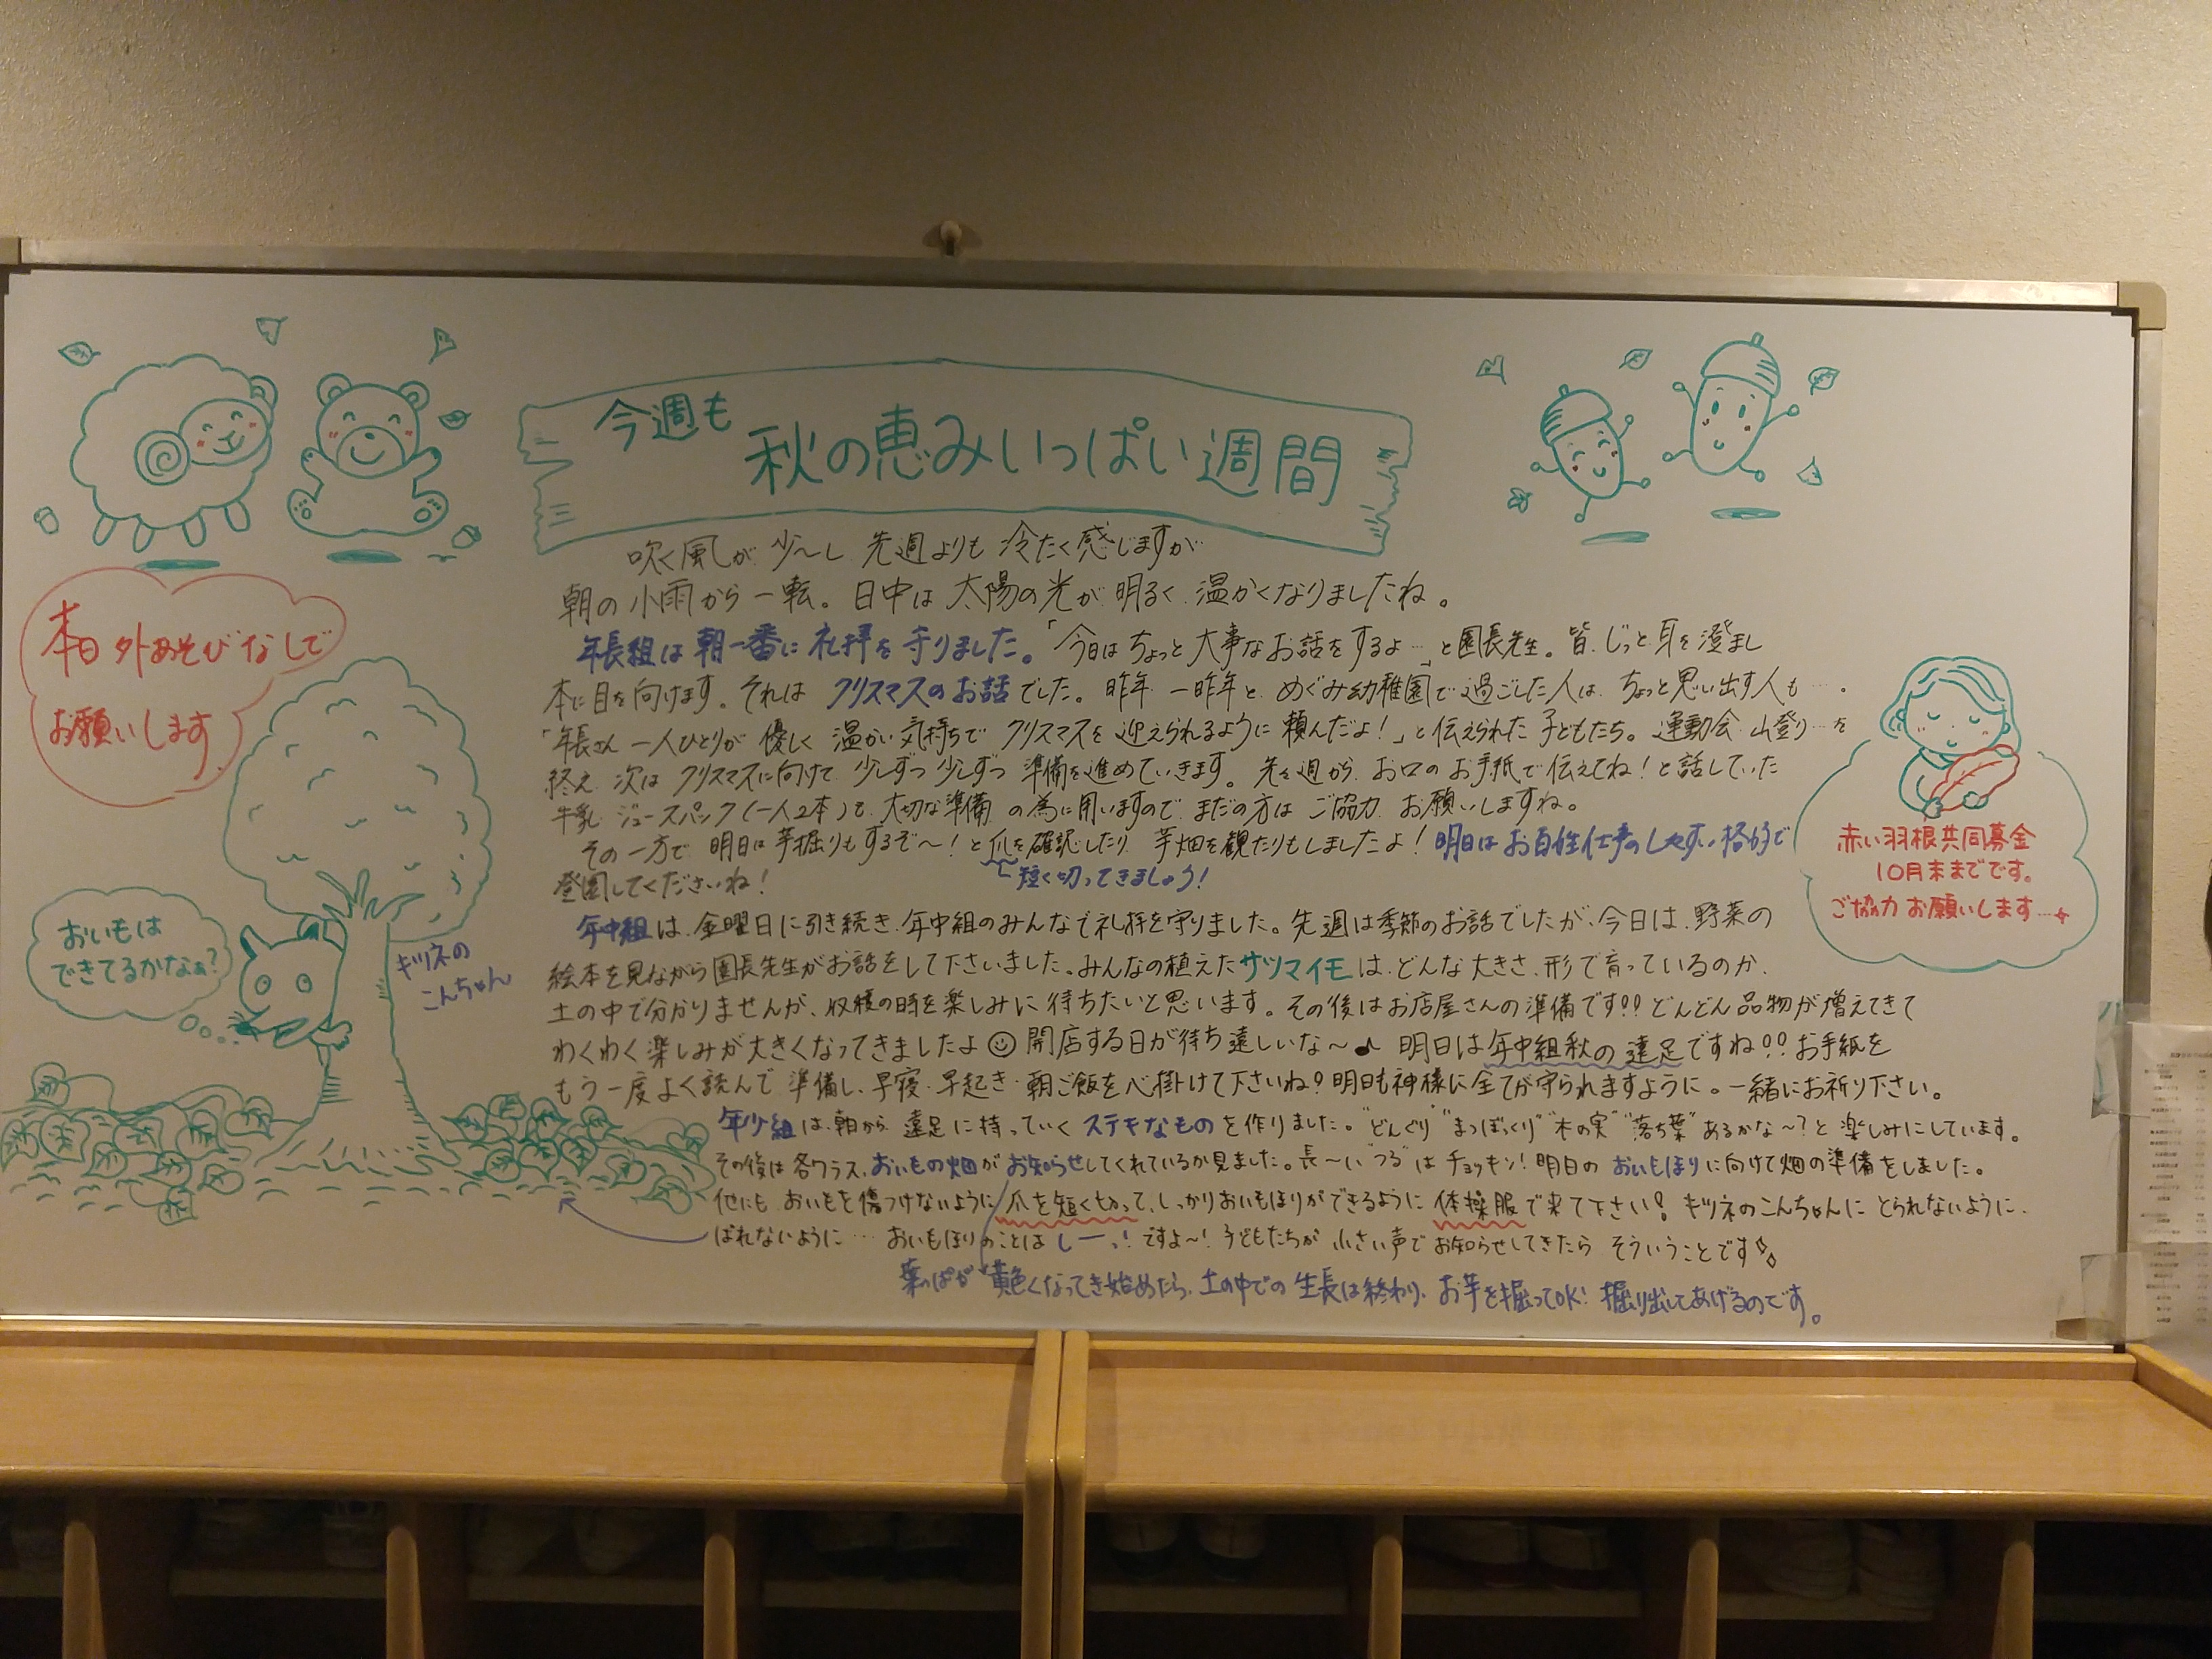 今週も
秋の恵みいっぱい週間
本日外あそびなしで
お願いします
吹く風が少〜し先週よりも冷たく感じますが
朝の小雨から一転。日中は太陽の光が明るく温かくなりましたね。
年長組は朝一番に礼拝を守りました。「今日はちょっと大事なお話をするよ…」と園長先生。皆、じっと耳を澄まし
本に目を向けます。それはクリスマスのお話でした。昨年、一昨年と、めぐみ幼稚園で過ごした人は、ちょっと思い出す人も…。
「年長さん一人ひとりが優しく温かい気持ちでクリスマスを迎えられるように頼んだよ!」と伝えられた子どもたち。運動会、山登り…を
終え、次はクリスマスに向けて少しずつ少しずつ準備を進めていきます。先週から、お口のお手紙で伝えてね!と話していた
牛乳、ジュースパック(一人2本)も、大切な準備の為に用いますので、まだの方はご協力お願いしますね。
その一方で明日は芋掘りもするぞ〜!と爪を確認したり、芋畑を観たりもしましたよ!明日はお百姓仕事のしやすい格好で
登園してくださいね!
短く切ってきましょう!
年中組は、金曜日に引き続き、年中組のみんなで礼拝を守りました。先週は季節のお話でしたが、今日は、野菜の
絵本を見ながら園長先生がお話をして下さいました。みんなの植えたサツマイモは、どんな大きさ、形で育っているのか、
土の中で分かりませんが、収穫の時を楽しみに待ちたいと思います。その後はお店屋さんの準備です!!どんどん品物が増えてきて
わくわく楽しみが大きくなってきましたよ☺開店する日が待ち遠しいな〜♪ 明日は年中組秋の遠足ですね!!お手紙を
もう一度よく読んで準備し、早寝・早起き・朝ご飯を心掛けて下さいね!明日も神様に全てが守られますように。一緒にお祈り下さい。
年少組は、朝から遠足に持っていくステキなものを作りました。"どんぐり""まつぼっくり""木の実""落ち葉"あるかな〜?と楽しみにしています。
その後は各クラス、おいもの畑がお知らせしてくれているか見ました。長〜い"つる"はチョッキン!明日のおいもほりに向けて畑の準備をしました。
他にも、おいもを傷つけないように爪を短く切って、しっかりおいもほりができるように体操服で来て下さい!キツネのこんちゃんにとられないように、
ばれないように…おいもほりのことはしーっ!ですよ〜!子どもたちが小さい声でお知らせしてきたらそういうことです
葉っぱが黄色くなってき始めたら、土の中での生長は終わり、お芋を掘ってOK!掘り出してあげるのです。
おいもは
できてるかなぁ?
キツネの
こんちゃん
赤い羽根共同募金
10月末までです。
ご協力お願いします…